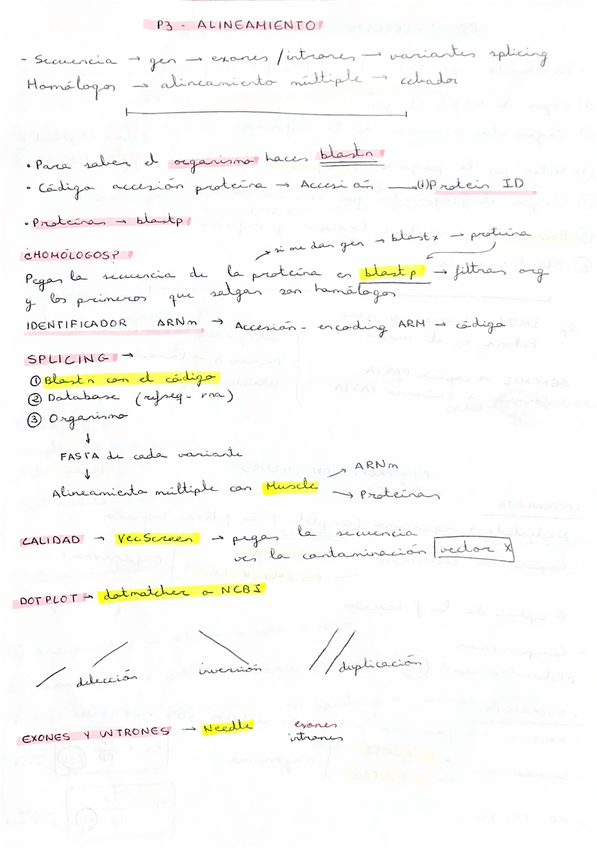 P3 - ALINEAMIENTO
- Secuencia → gen → exones / intrones → variantes splicing
Homólogos → alineamiento múltiple → cebador
• Para saber el organismo haces blastn
• Código accesión proteína → Accesión → (1) Protein ID
• Proteínas → blastp
¿HOMÓLOGOS?
→ si me dan gen → blastx → proteína
Pegas la secuencia de la proteína en blastp → filtras org
y los primeros que salgan son homólogos
IDENTIFICADOR ARNm → Accesión - encoding ARM → código
SPLICING →
① Blastn con el código
② Database (refseq-rna)
③ Organismo
↓
FASTA de cada variante
↓
Alineamiento múltiple con Muscle → ARNm
→ Proteínas
CALIDAD → VecScreen → pegas la secuencia
ves la contaminación vector X
DOTPLOT → dotmatcher o NCBI
delección inversión duplicación
EXONES Y INTRONES → Needle exones
intrones